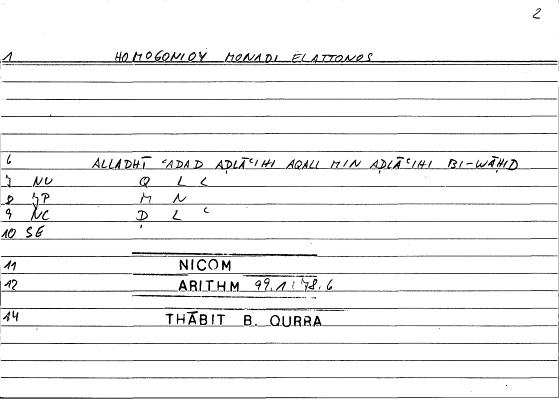 2
1 HOMOGONIOY MONADI ELATTONOS
6 ALLADHĪ ʿADAD AḌLĀʿIHI AQALL MIN AḌLĀʿIHI BI-WĀḤID
7 NU Q L L
8 JP M N
9 NC Ḍ L ʿ
10 SE
11 NICOM
12 ARITHM 99.1 : 78.6
14 THĀBIT B. QURRA